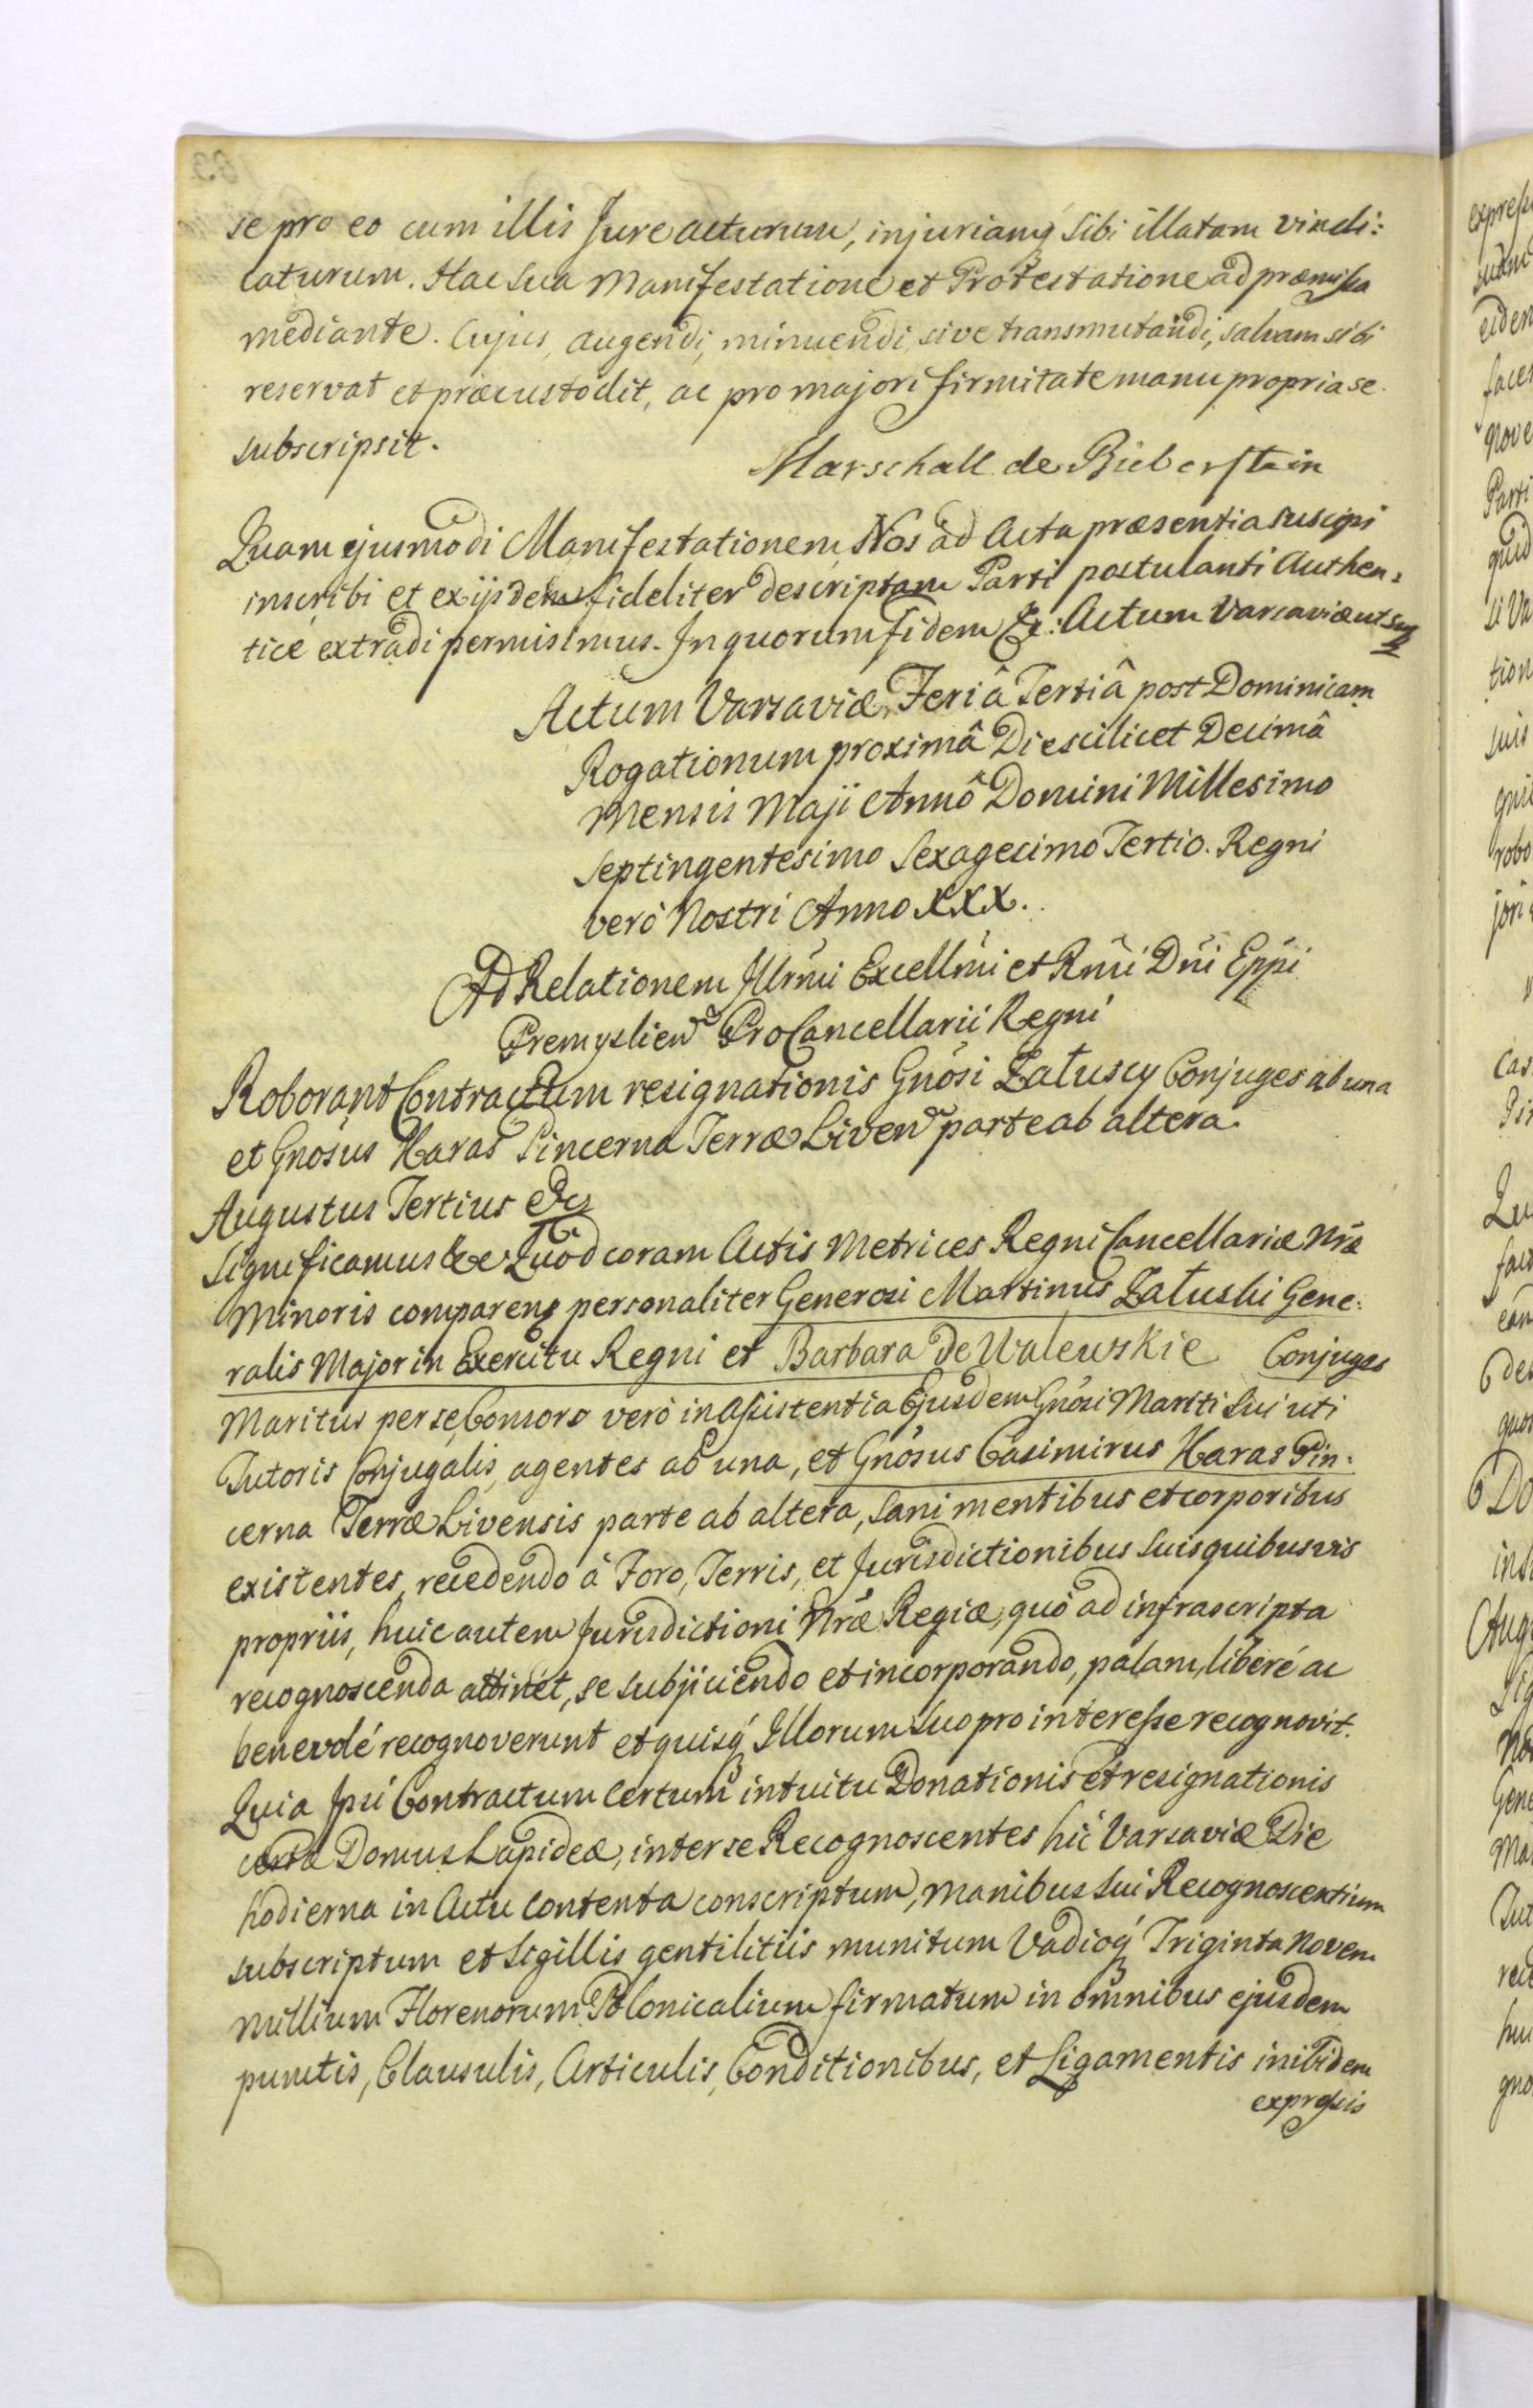 se pro eo cum illis Jure acturum, injuriamq́ Sibi illatam vindi:
caturum. Hac Sua Manifestatione et Protestatione ad præmissa
mediante. Cujus, augendi, minuendi, sive transmutandi, salvam sibi
reservat et præcustodit, ac pro majori firmitate manu propria se
subscripsit.
Marschall de Bieberstein
Quam ejusmodi Manifestationem Nos ad Acta præsentia suscipi
inscribi et ex ijsdem fideliter descriptam Parti postulanti Authen:
ticè extradi permisimus. In quorum fidem &c: Actum Varsaviæ ut sup
Actum Varsaviæ Feriâ Tertiâ post Dominicam
Rogationum proximâ Die scilicet Decimâ
Mensis Maji Annô Domini Millesimo
Septingentesimo Sexagecimo Tertio. Regni
verò Nostri Anno XXX.
Ad Relationem Illrmi Excellmi et Rmi Dni Eppi
Premyslien ProCancellarii Regni
Roborant Contractum resignationis Gnosi Załuscy Conjuges ab una
et Gnosus Haras Pincerna Terræ Liven parte ab altera.
Augustus Tertius &c
Significamus &c Quod coram Actis Metrices Regni Cancellariæ Nræ
Minoris comparens personaliter Generosi Martinus Załuski Gene:
ralis Major in Exercitu Regni et Barbara de Walewskie Conjuges
Maritus per se, Consors verò in Assistentia Ejusdem Gnosi Mariti Sui uti
Tutoris Conjugalis, agentes ab una, et Gnosus Casimirus Haras Pin:
cerna Terræ Livensis parte ab altera, Sani mentibus et corporibus
existentes, recedendo à Foro, Terris, et Jurisdictionibus Suis quibusvis
propriis, huic autem Jurisdictioni Nræ Regiæ, quò ad infrascripta
recognoscenda attinet, se subjiciendo et incorporando, palam, liberè ac
benevolé recognoverunt et quisq́ Illorum Suo pro interesse recognovit.
Quia Ipsi Contractum certum intuitu Donationis et resignationis
certæ Domus Lapideæ, inter se Recognoscentes hic Varsaviæ Die
hodierna in Actu contenta conscriptum, Manibus Sui Recognoscentium
subscriptum et Sigillis gentilitiis munitum Vadioq́ Triginta Novem
millium Florenorum Polonicalium firmatum in omnibus ejusdem
punctis, Clausulis, Articulis, Conditionibus, et Ligamentis inibidem
expressis